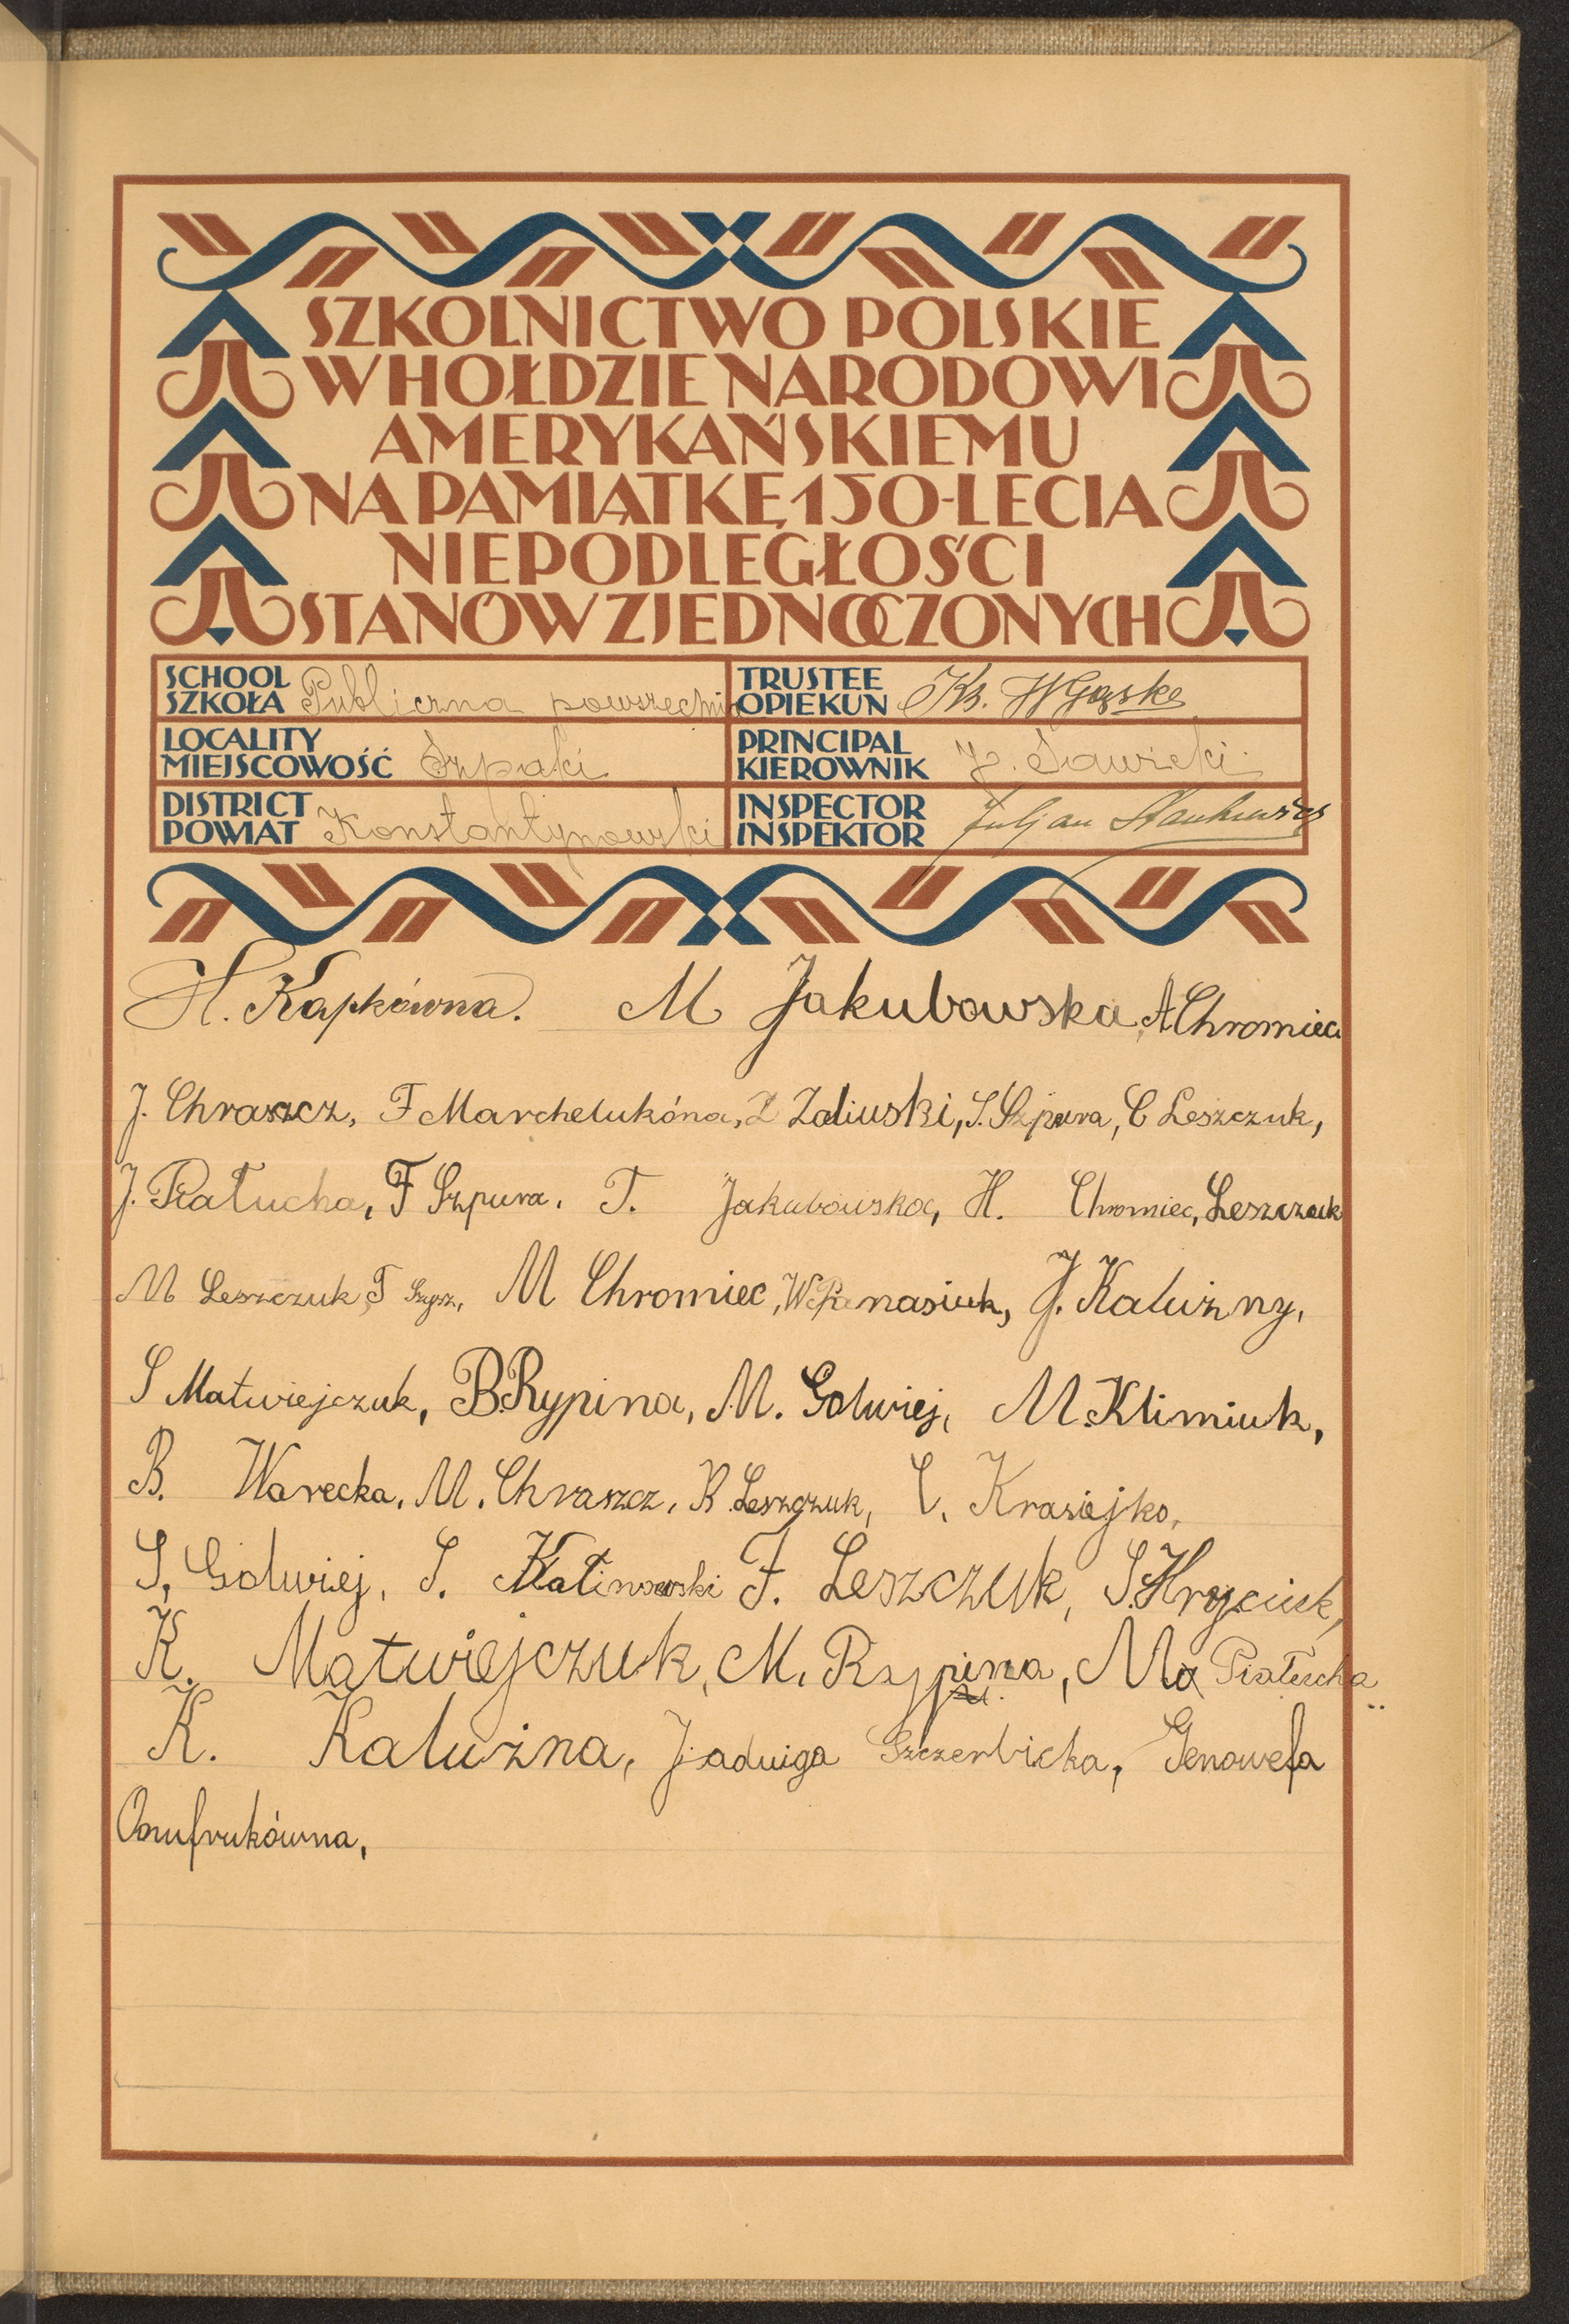 SZKOLNICTWO POLSKIE
W HOŁDZIE NARODOWI
AMERYKAŃSKIEMU
NA PAMIĄTKĘ 150-LECIA
NIEPODLEGŁOŚCI
STANÓW ZJEDNOCZONYCH
SCHOOL
SZKOŁA Publiczna powszechna
TRUSTEE
OPIEKUN Ks. W Gąske
LOCALITY
MIEJSCOWOŚĆ Szpaki
PRINCIPAL
KIEROWNIK J. Sawicki
DISTRICT
POWIAT Konstantynowski
INSPECTOR
INSPEKTOR Juljan Stankiewicz
H. Kapkówna. M Jakubowska, A Chromiec
J. Chraszcz, F Marchelukóna, Z Zaliuski, S. Szpura, C Leszczuk,
J. Piatucha, F Szpura, T. Jakubowska, H. Chromiec, Leszczuk
M Leszczuk, T M Chromiec, W Panasiuk, J. Kalużny,
S Matwiejczuk, B. Rypina, M. Golwiej, M. Klimiuk,
B. Warecka, M. Chraszcz, K. Leszczuk, C. Krasiejko,
S, Golwiej, S. Kalinowski F. Leszczuk, S. Hryciuk,
K. Matwiejczuk, M. Rzypina, Ma Piatucha
K. Kalużna, Jadwiga Szczerbicka, Genowefa
Onufrukówna,